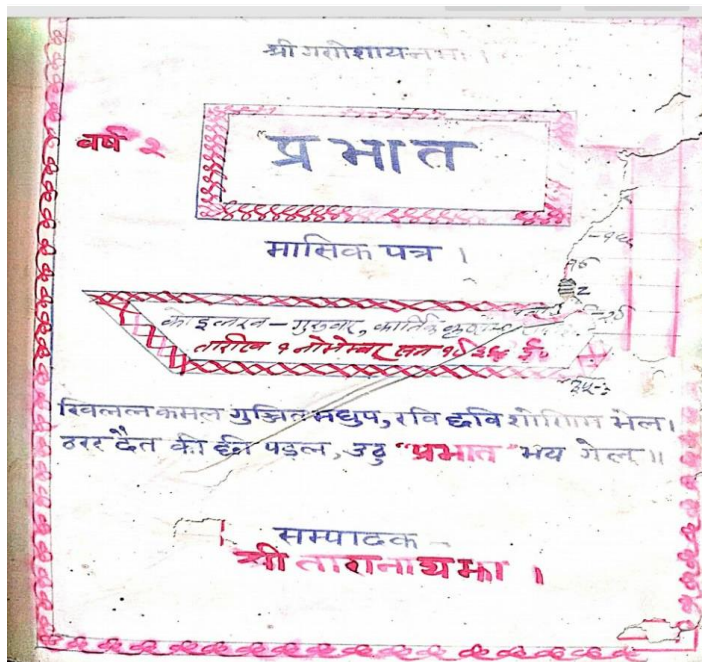 श्री गणेशायनमः ।
वर्ष २
"प्रभात
मासिक पत्र ।
कोइलख - गुरुवार, कार्तिक कृष्ण
तारीख १ नोमेम्बर सन १९३४ ई०
खिलल कमल गुञ्जित मधुप, रवि छवि शोणित भेल।
ठरर दैत की छी पड़ल, उठु "प्रभात" भय गेल॥
सम्पादक -
श्री तारानाथझा ।